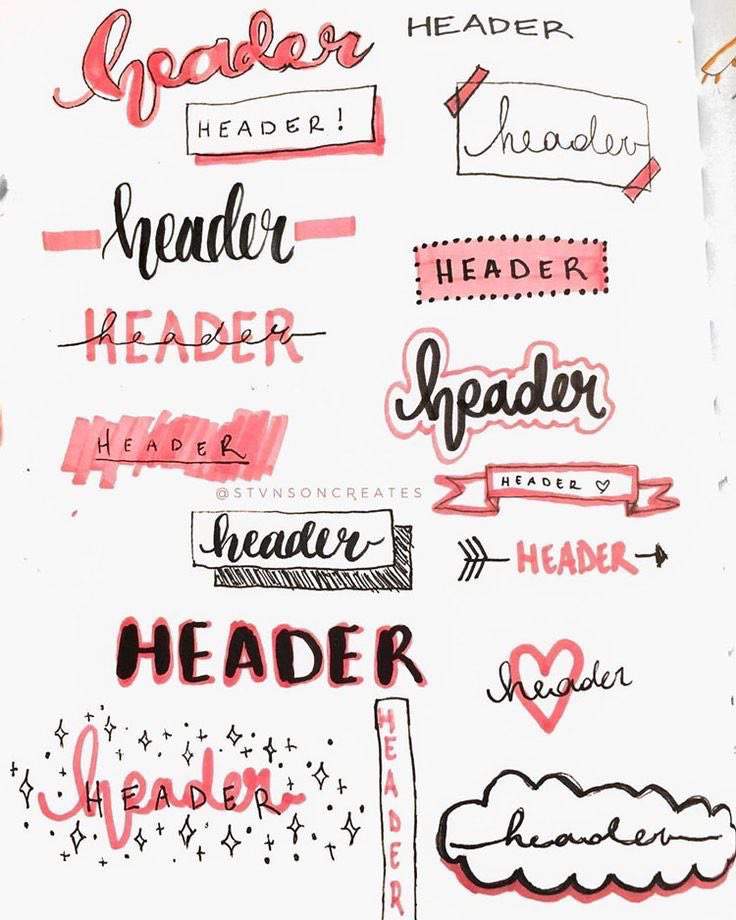 header
HEADER
HEADER!
header
header
HEADER
HEADER
header
header
HEADER
@STVNSONCREATES
HEADER ♡
header
HEADER
HEADER
header
header
HEADER
HEADER
header